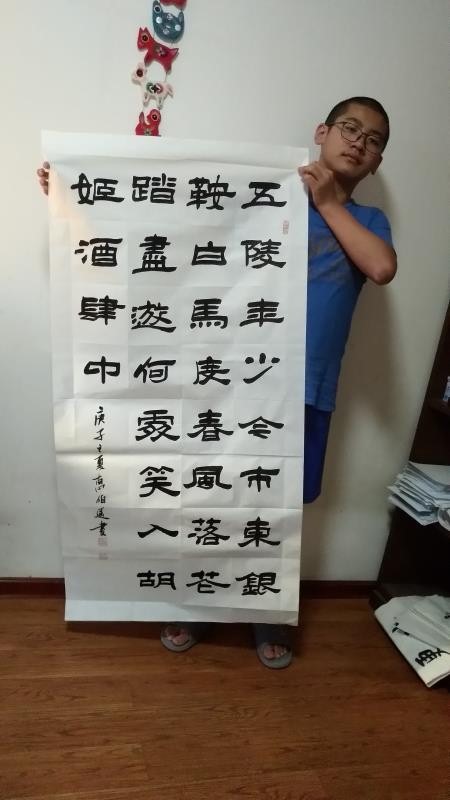 五陵年少今市東銀
鞍白馬度春風落花
踏盡遊何處笑入胡
姬酒肆中
庚子之夏高伯書